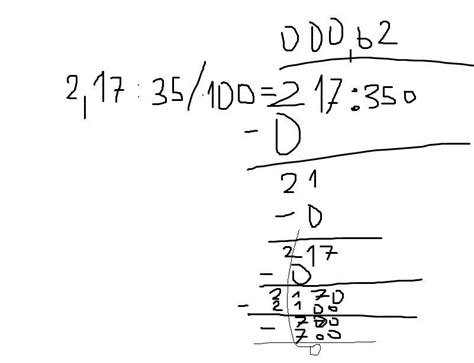 000,62
2,17:35/·100=217:350
- 0
21
- 0
217
- 0
2170
- 2100
700
- 700
0